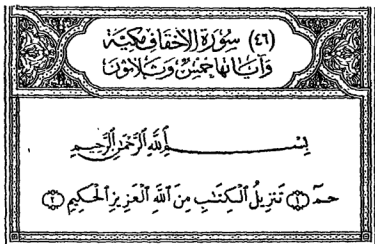 (٤٦) سورة الأحقاف مكية
وآياتها خمس وثلاثون
بِسْمِ اللَّهِ الرَّحْمَٰنِ الرَّحِيمِ
حمٓ ﴿١﴾ تَنْزِيلُ الْكِتَابِ مِنَ اللَّهِ الْعَزِيزِ الْحَكِيمِ ﴿٢﴾